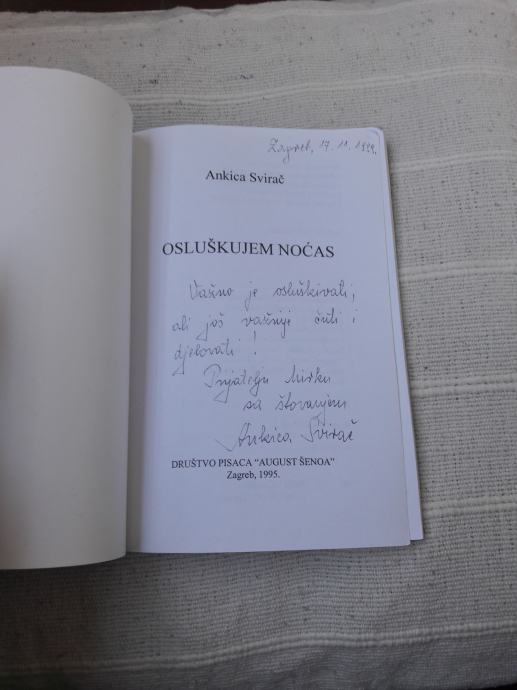 Zagreb, 17. 11. 1999.
Ankica Svirač
OSLUŠKUJEM NOĆAS
Važno je osluškivati,
ali još važnije čuti i
djelovati!
Prijatelju Mirku
sa štovanjem
Ankica Svirač
DRUŠTVO PISACA "AUGUST ŠENOA"
Zagreb, 1995.